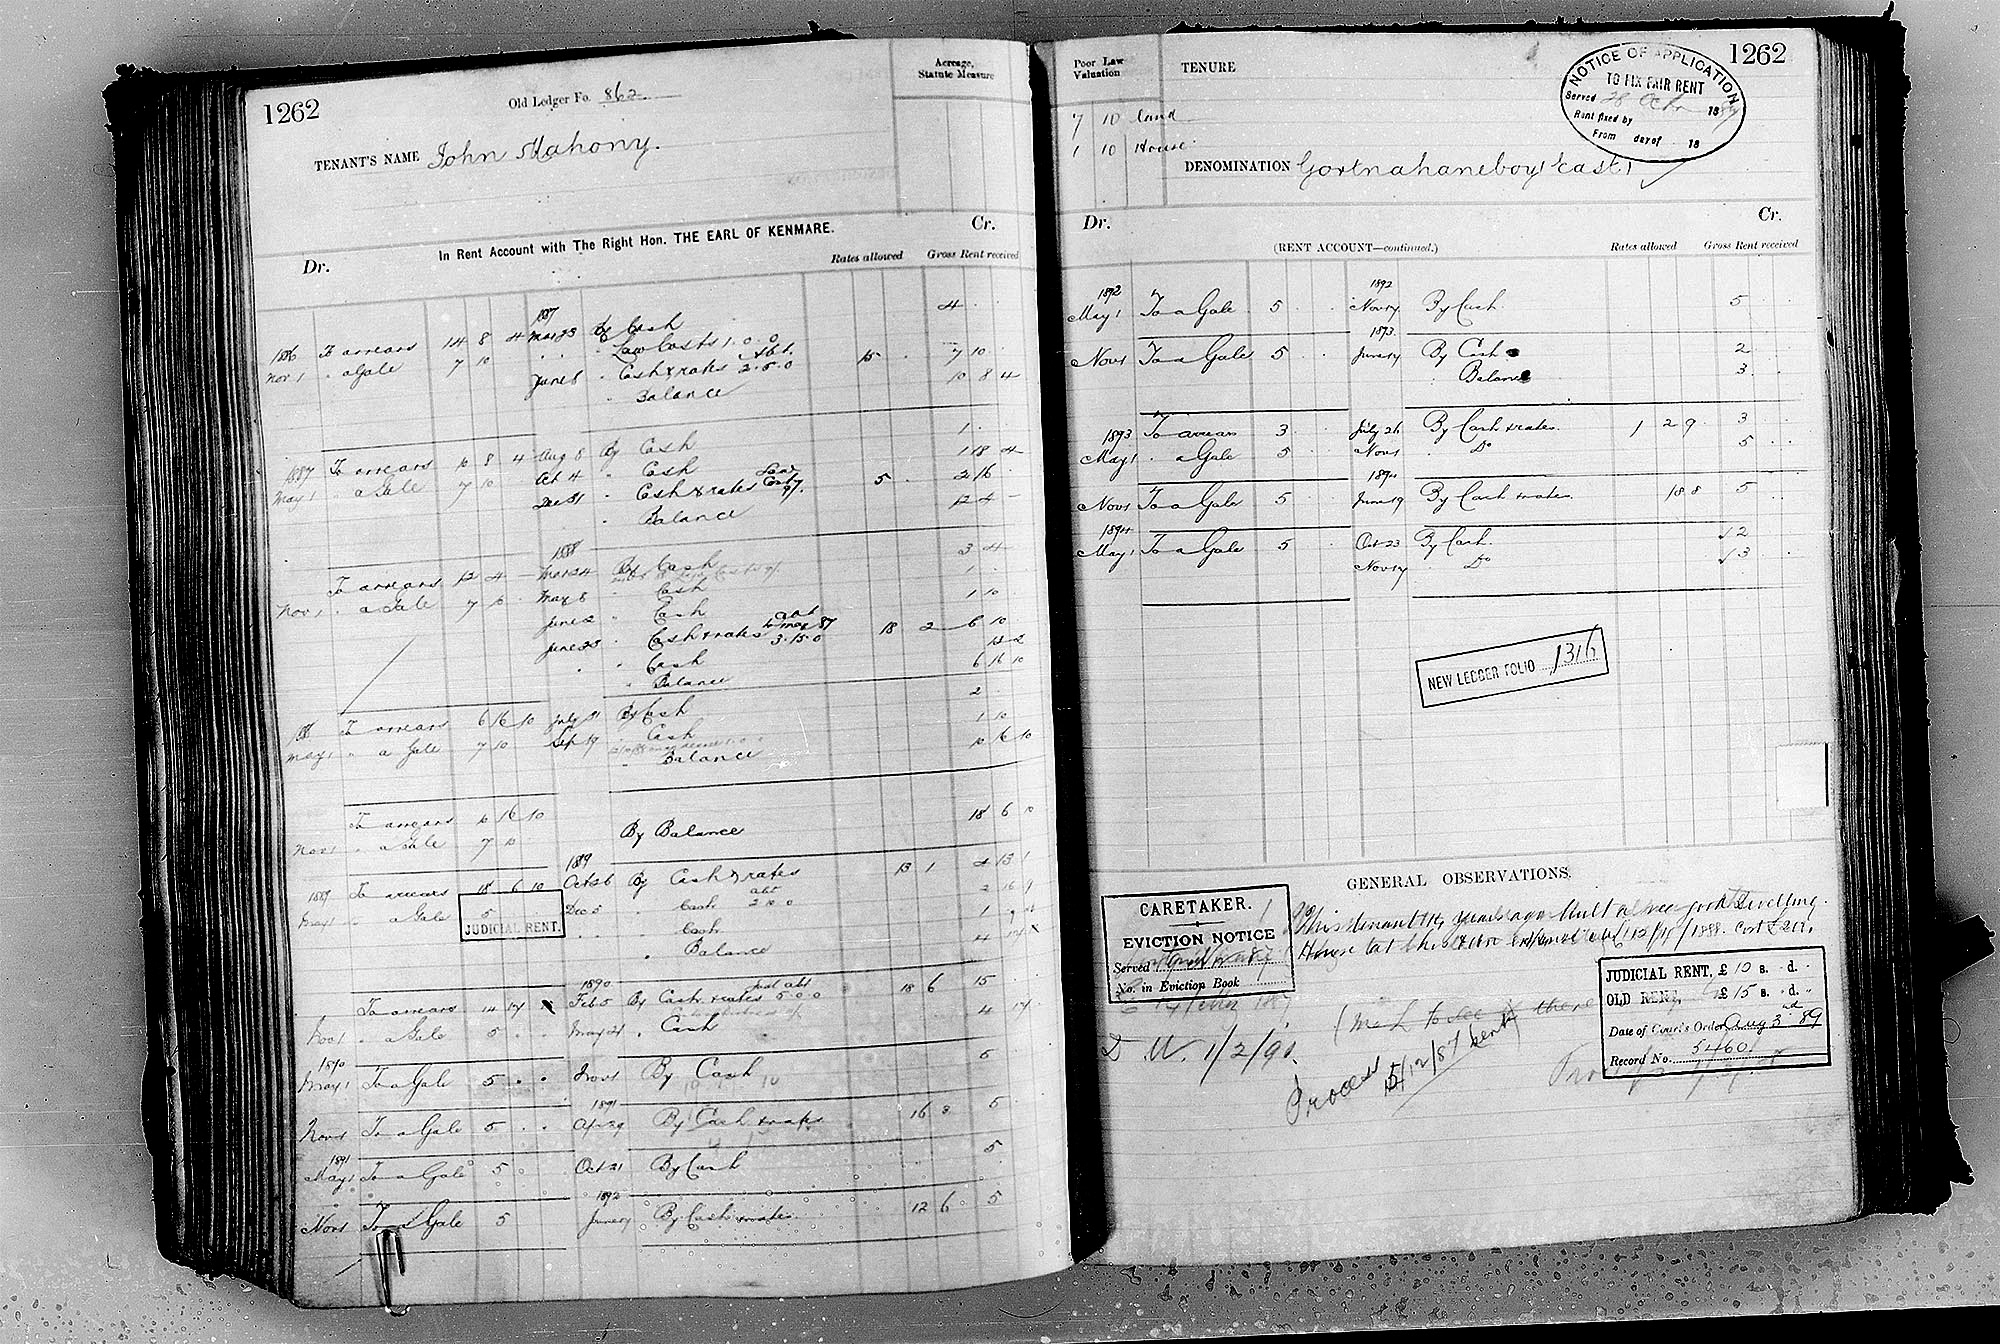 1262
Old Ledger Fo. 862
Acreage,
Statute Measure
TENANT'S NAME John Mahony.
In Rent Account with The Right Hon. THE EARL OF KENMARE.
Dr. Cr.
Rates allowed Gross Rent received
1887 4
1886 To arrears 14 8 4 Mar 23 By Cash
Nov 1 " a Gale 7 10 " " " Law Costs 1.0.0
June 8 " Cash & rates 2.5.0 15 7 10
" Balance 10 8 4
1887 To arrears 10 8 4 Aug 8 By Cash 1
May 1 " a Gale 7 10 Oct 4 " Cash 1 18 4
Dec 31 " Cash & rates 5 2 16
" Balance 12 4 -
1888
To arrears 12 4 - Mar 24 By Cash 3 4
Nov 1 " a Gale 7 10 May 8 " Cash 1
June 2 " Cash 1 10
June 23 " Cash & rates abt to May 87 3.15.0 18 2 6 10
" " Cash 12 2
" Balance 6 16 10
1888 To arrears 6 16 10 July 31 By Cash 2
May 1 " a Gale 7 10 Sep 19 " Cash 1 10
" Balance 10 16 10
To arrears 10 16 10
Nov 1 " a Gale 7 10 By Balance 18 6 10
1889
1889 To arrears 18 6 10 Oct 26 By Cash & rates 13 1 4 13 1
May 1 " a Gale 5 Dec 5 " Cash abt 2 10 0 2 16 9
JUDICIAL RENT.
" " Cash 1
" Balance 4 17
1890
To arrears 14 17 Feb 5 By Cash & rates Just abt 5 0 0 18 6 15
Nov 1 " a Gale 5 May 21 " Cash 4 17
1890
May 1 To a Gale 5 Nov 1 By Cash 5
1891
Nov 1 To a Gale 5 Apr 29 By Cash & rates 16 8 5
1891
May 1 To a Gale 5 Oct 21 By Cash 5
1892
Nov 1 To a Gale 5 June 17 By Cash & rates 12 6 5
1262
Poor Law
Valuation
TENURE
7 10 Land
1 10 House
NOTICE OF APPLICATION
TO FIX FAIR RENT
Served 28 Octr 1887
Rent fixed by
From day of 18
DENOMINATION Gortnahaneboy (East)
Dr. Cr.
(RENT ACCOUNT—continued.)
Rates allowed Gross Rent received
1892 1892
May 1 To a Gale 5 Nov 17 By Cash 5
1873
Nov 1 To a Gale 5 June 17 By Cash 2
" Balance 3
1893 To arrears 3 July 26 By Cash & rates 1 2 9 3
May 1 " a Gale 5 Nov 1 " Do 5
1894
Nov 1 To a Gale 5 June 19 By Cash & rates 18 8 5
1894
May 1 To a Gale 5 Oct 23 By Cash 2
Nov 17 " Do 3
NEW LEDGER FOLIO 1316
GENERAL OBSERVATIONS.
CARETAKER.
EVICTION NOTICE
Served
No. in Eviction Book
This tenant 14 years ago built a very good Dwelling
House
12/11/1888. Cost £20.
JUDICIAL RENT, £10 s. d.
OLD RENT, £15 s. d.
Date of Court's Order Aug 3rd 89
Record No. 5460
1/2/90.
Process 15/12/87 sent